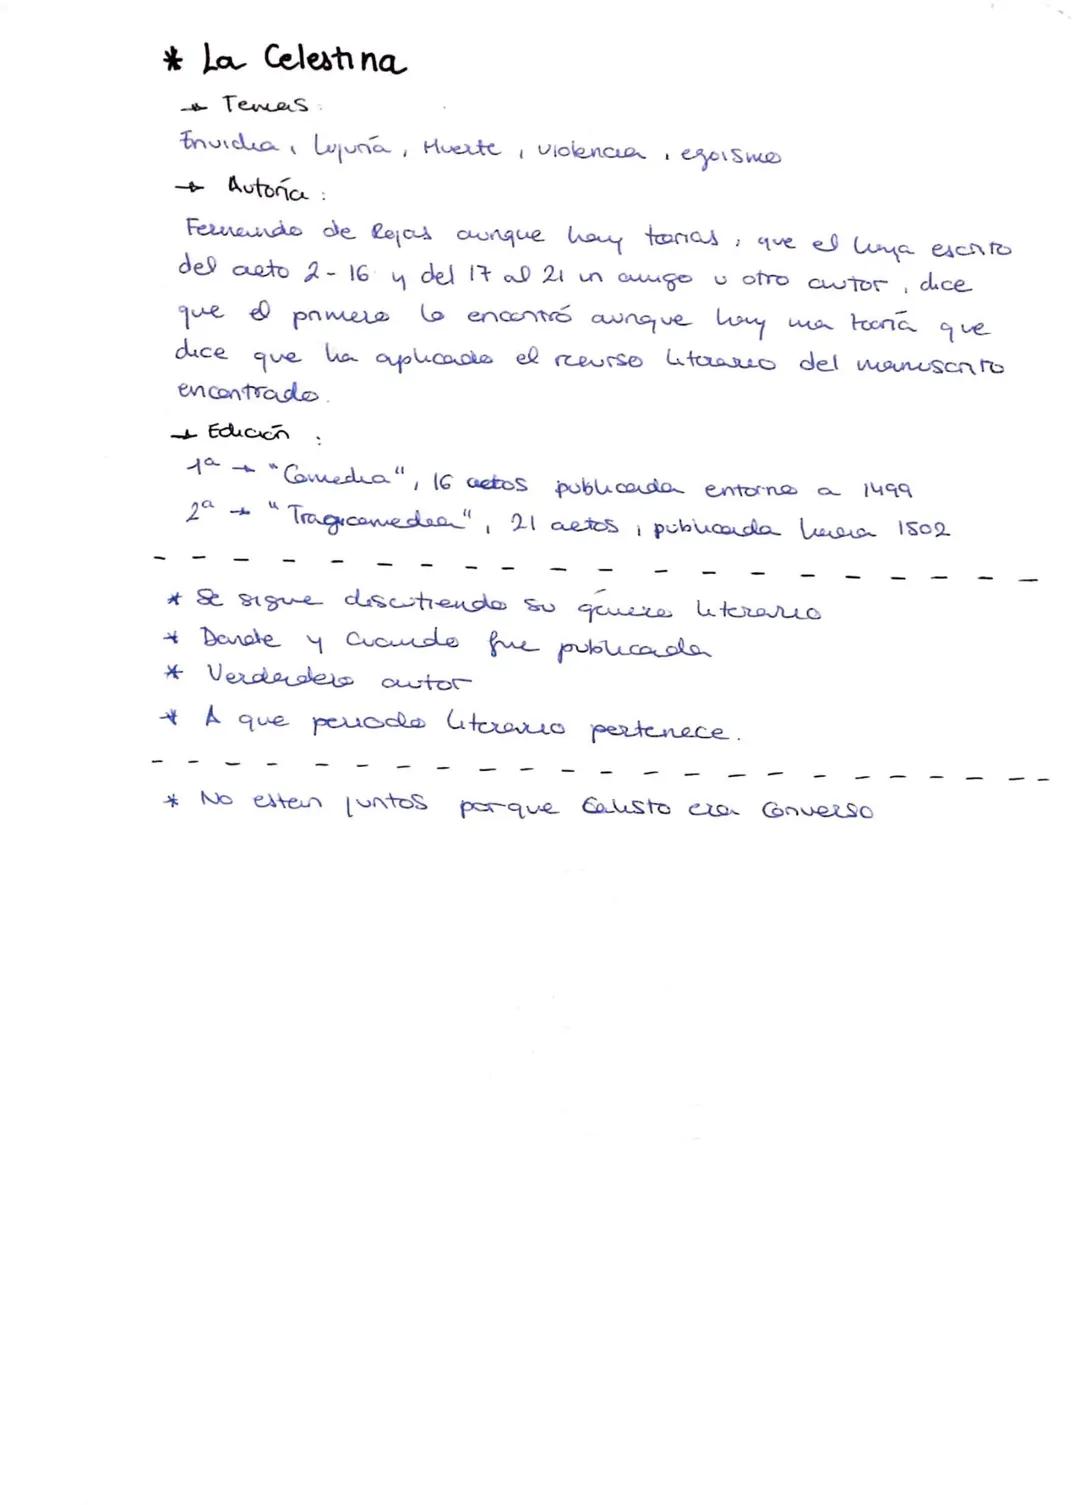 * La Celestina
→ Temas:
Envidia, lujuría, Muerte, violencia, egoismo
→ Autoría:
Fernando de Rojas aunque hay teorías, que el haya escrito
del acto 2-16 y del 17 al 21 un amigo u otro autor, dice
que el primero lo encontró aunque hay una teoría que
dice que ha aplicado el recurso literario del manuscrito
encontrado.
→ Edición:
1ª → "Comedia", 16 actos publicada entorno a 1499
2ª → "Tragicomedia", 21 actos, publicada hacia 1502
* Se sigue discutiendo su género literario
* Donde y Cuando fue publicada
* Verdadero autor
* A que periodo literario pertenece.
* No estan juntos porque Calisto era Converso